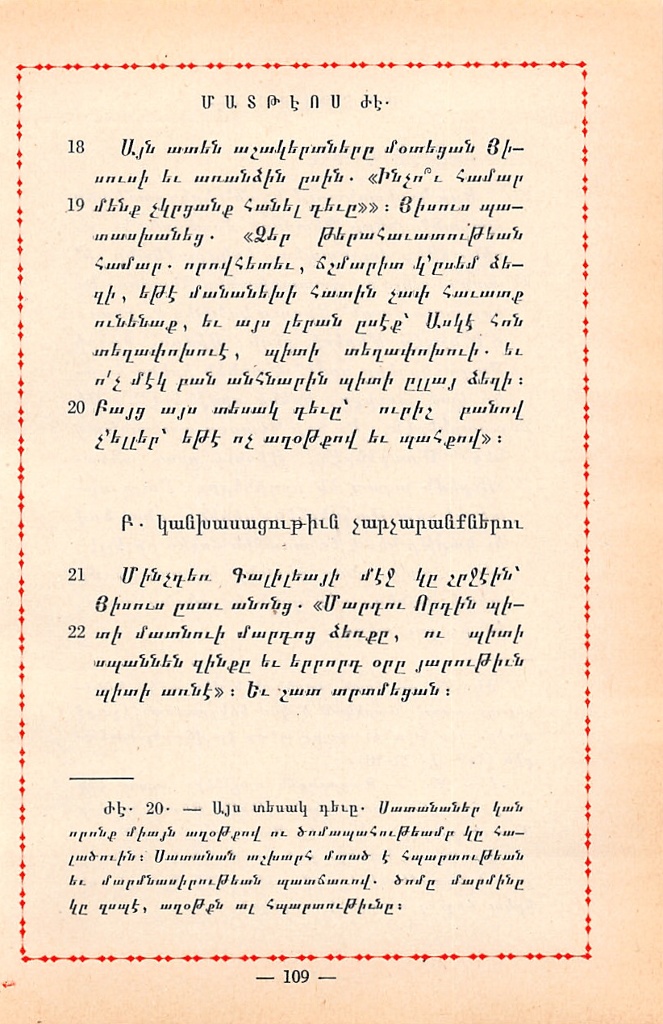 ՄԱՏԹԷՈՍ ԺԷ.
18 Այն ատեն աշակերտները մօտեցան Յի-
սուսի եւ առանձին ըսին. «Ինչո՞ւ համար
19 մենք չկրցանք հանել դեւը»»։ Յիսուս պա-
տասխանեց. «Ձեր թերահաւատութեան
համար. որովհետեւ, ճշմարիտ կ՚ըսեմ ձե-
զի, եթէ մանանեխի հատին չափ հաւատք
ունենաք, եւ այս լերան ըսէք՝ Ասկէ հոն
տեղափոխուէ, պիտի տեղափոխուի. եւ
ո՛չ մէկ բան անհնարին պիտի ըլլայ ձեզի։
20 Բայց այս տեսակ դեւը՝ ուրիշ բանով
չ՚ելլեր՝ եթէ ոչ աղօթքով եւ պահքով»։
Բ. կանխասացութիւն չարչարանքներու
21 Մինչդեռ Գալիլեայի մէջ կը շրջէին՝
Յիսուս ըսաւ անոնց. «Մարդու Որդին պի-
22 տի մատնուի մարդոց ձեռքը, ու պիտի
սպաննեն զինքը եւ երրորդ օրը յարութիւն
պիտի առնէ»։ Եւ շատ տրտմեցան։
ԺԷ. 20. — Այս տեսակ դեւը. Սատանաներ կան
որոնք միայն աղօթքով ու ծոմապահութեամբ կը հա-
լածուին։ Սատանան աշխարհ մտած է հպարտութեան
եւ մարմնասիրութեան պատճառով. ծոմը մարմինը
կը զսպէ, աղօթքն ալ հպարտութիւնը։
— 109 —